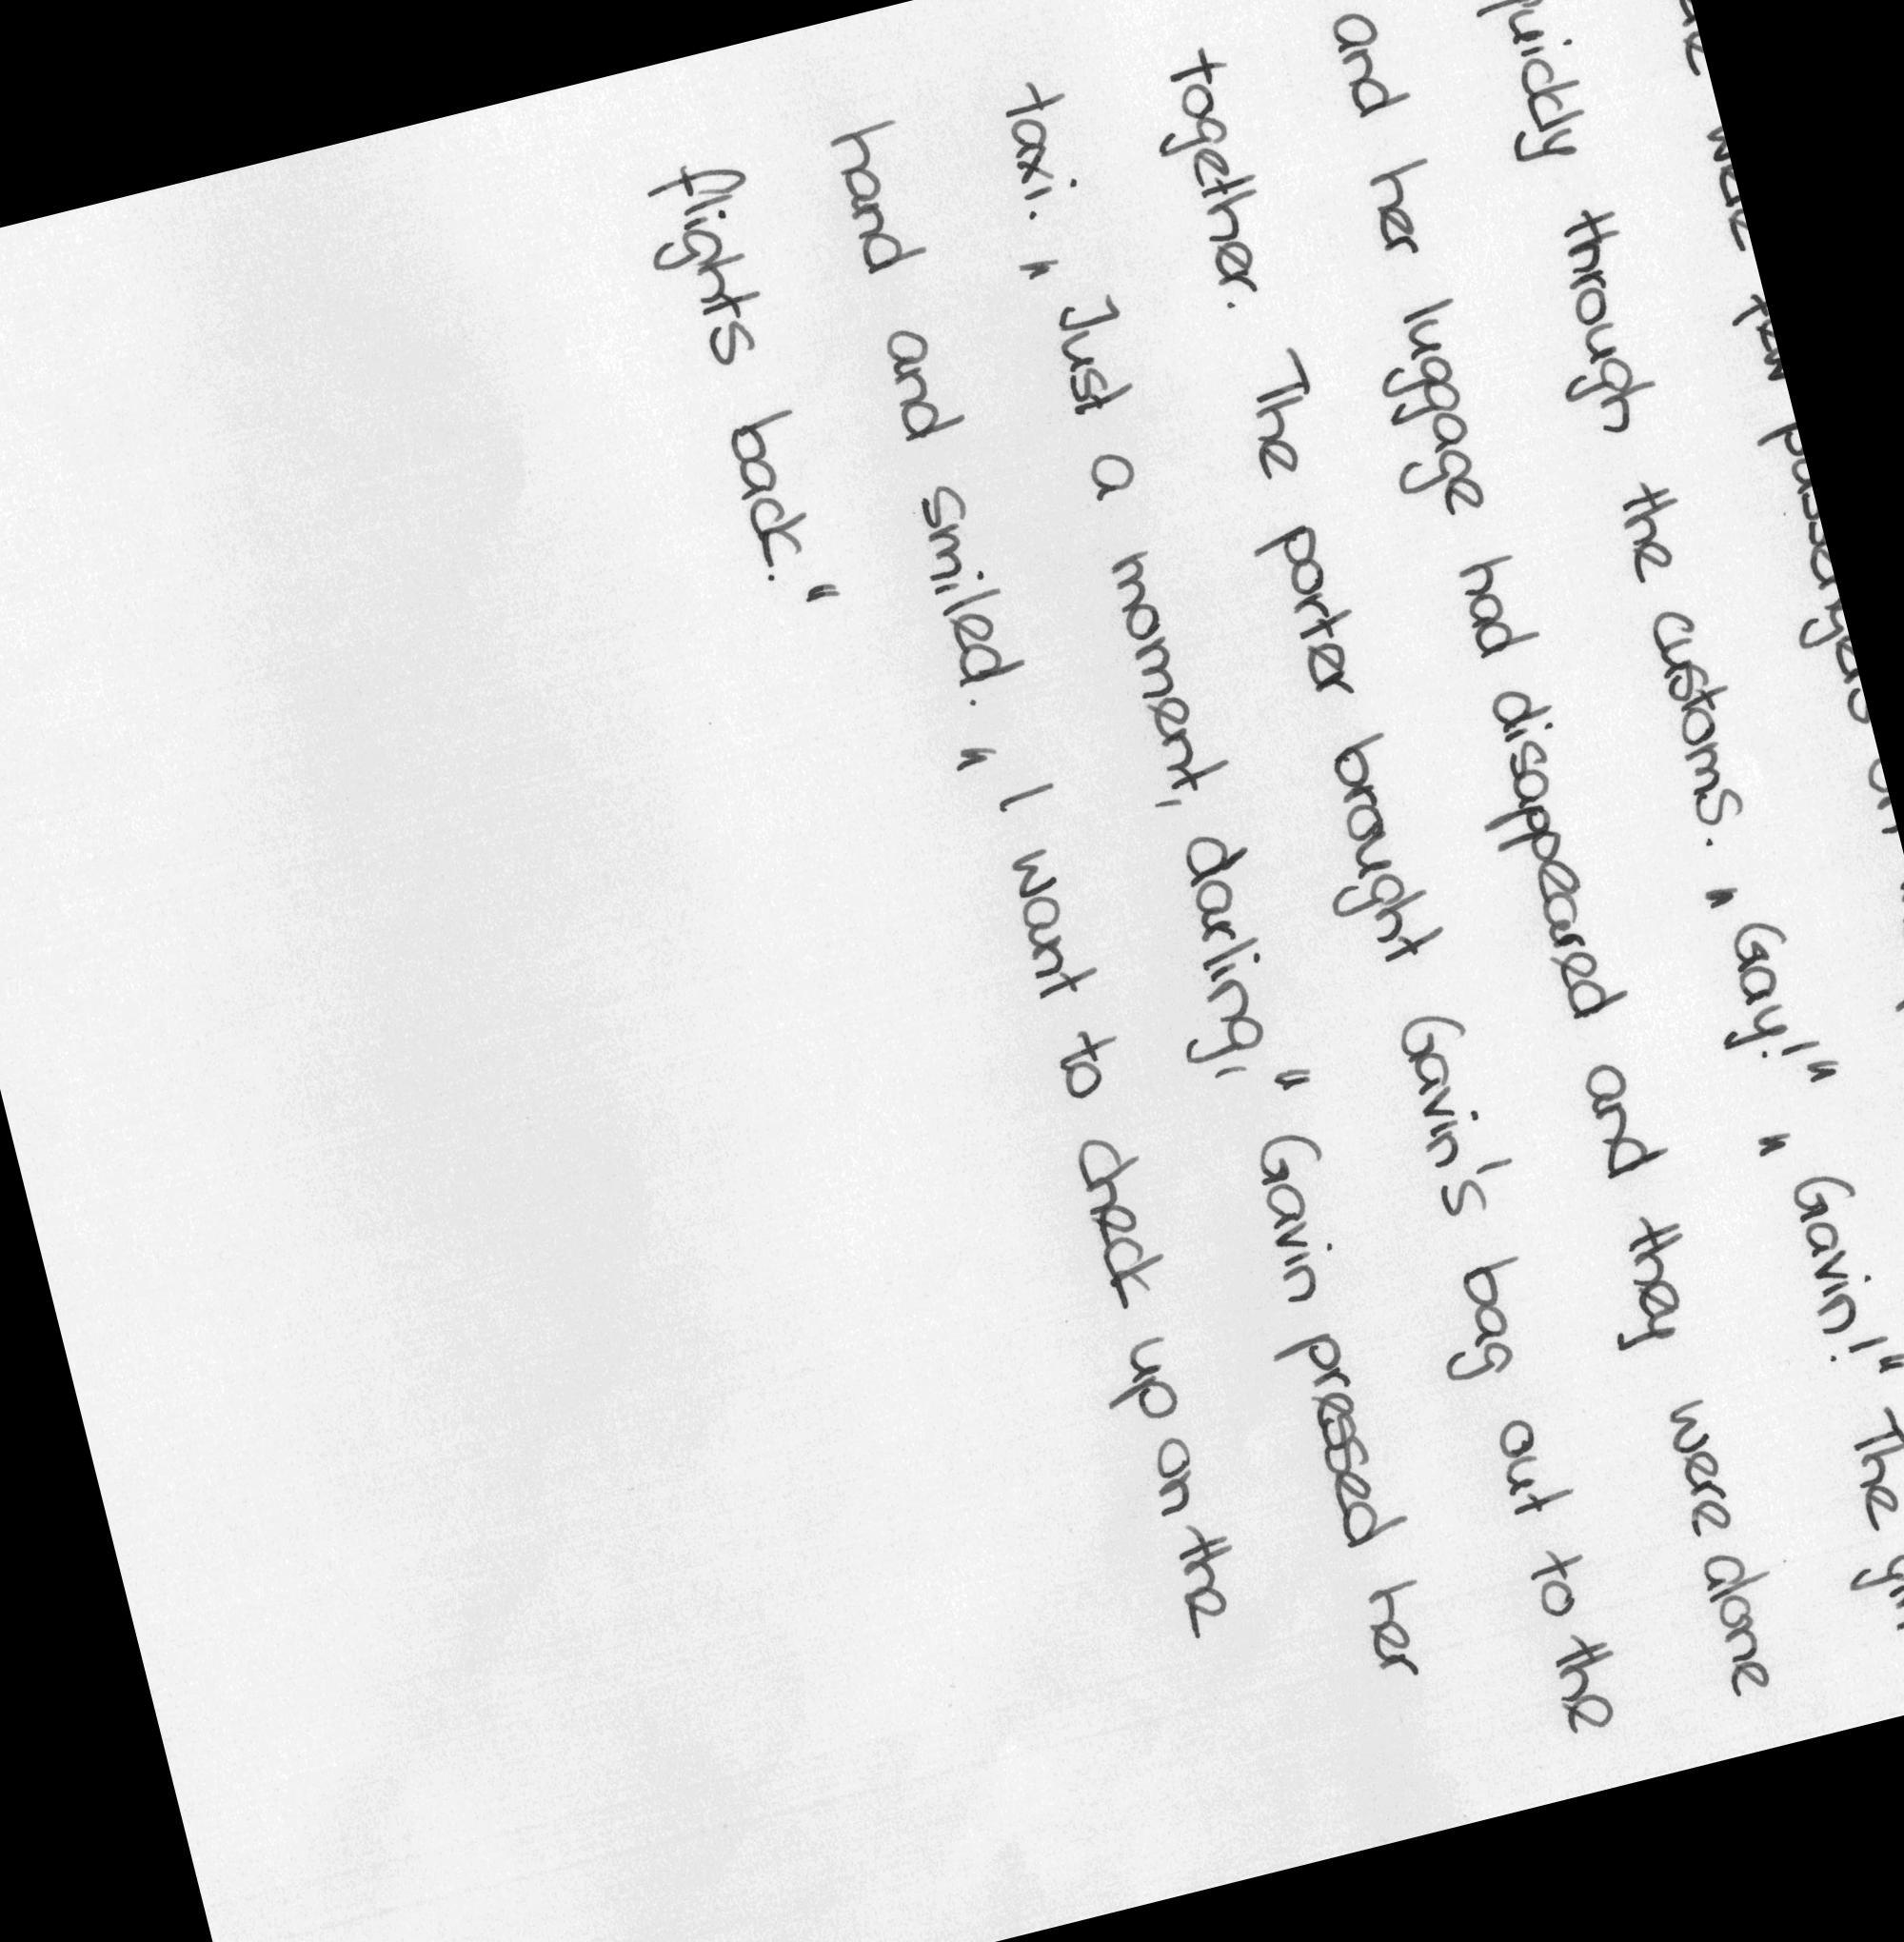 were few passengers
quickly through the customs. "Gay!" "Gavin!" The
and her luggage had disappeared and they were alone
together. The porter brought Gavin's bag out to the
taxi. "Just a moment, darling," Gavin pressed her
hand and smiled. "I want to check up on the
flights back."